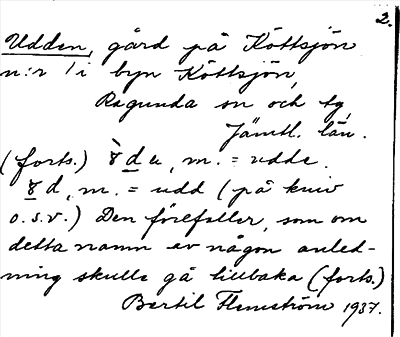 2.
Udden, gård på Köttsjön
n:r 1 i byn Köttsjön,
Ragunda sn och tg,
Jämtl. län.
(forts.) du, m. = udde.
d, m. = udd (på kniv
o.s.v.) Den förefaller, som om
detta namn av någon anled-
ning skulle gå tillbaka (forts.)
Bertil Flemström 1937.